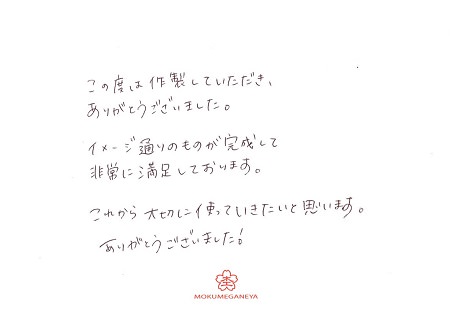 この度は作製していただき、
ありがとうございました。
イメージ通りのものが完成して
非常に満足しております。
これから大切に使っていきたいと思います。
ありがとうございました!
MOKUMEGANEYA